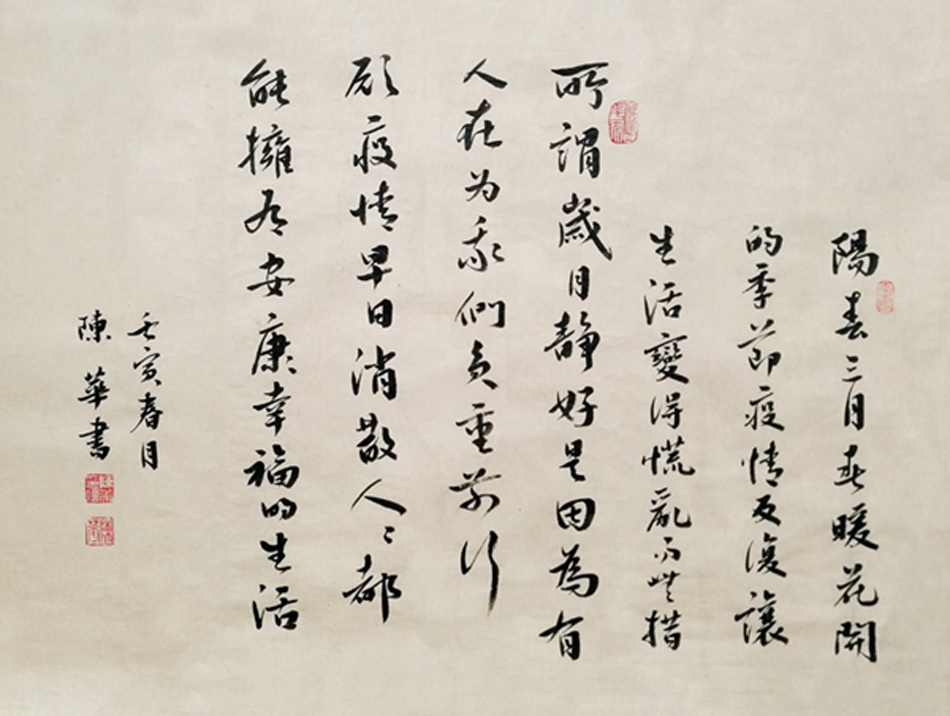 陽春三月春暖花開
的季節疫情反復讓
生活變得慌亂不措
所謂歲月静好是因為有
人在为我們負重前行
願疫情早日消散人々都
能擁有安康幸福的生活
壬寅春月
陳華書